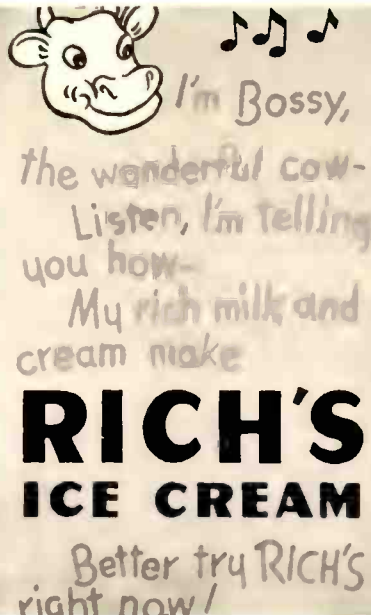 I'm Bossy,
the wonderful cow-
Listen, I'm telling
you how-
My rich milk and
cream make
RICH'S
ICE CREAM
Better try RICH'S
right now!